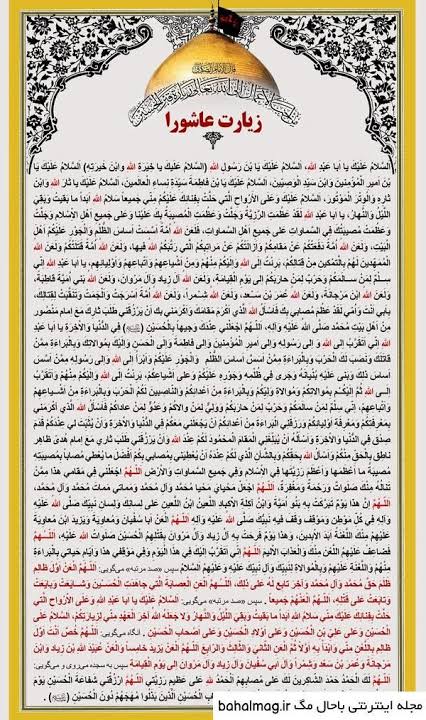 زیارت عاشورا
اَلسَّلامُ عَلَیْكَ یا اَبا عَبْدِ اللهِ، اَلسَّلامُ عَلَیْكَ یَا بْنَ رَسُولِ اللهِ (السَّلامُ عَلَیكَ یا خِیَرَةَ اللهِ وابْنَ خِیَرَتِهِ) اَلسَّلامُ عَلَیْكَ یَا
بْنَ اَمیرِ الْمُؤْمِنینَ وَابْنَ سَیِّدِ الْوَصِیّینَ، اَلسَّلامُ عَلَیْكَ یَا بْنَ فاطِمَةَ سَیِّدَةِ نِساءِ الْعالَمینَ، اَلسَّلامُ عَلَیْكَ یا ثارَ اللهِ وَابْنَ
ثارِهِ وَالْوِتْرَ الْمَوْتُورَ، اَلسَّلامُ عَلَیْكَ وَعَلَى الاَْرواحِ الَّتی حَلَّتْ بِفِنائِكَ عَلَیْكُمْ مِنّی جَمیعاً سَلامُ اللهِ اَبَداً ما بَقیتُ وَبَقِیَ
اللَّیْلُ وَالنَّهارُ، یا اَبا عَبْدِ اللهِ لَقَدْ عَظُمَتِ الرَّزِیَّةُ وَجَلَّتْ وَعَظُمَتِ الْمُصیبَةُ بِكَ عَلَیْنا وَعَلى جَمیعِ اَهْلِ الاِْسْلامِ وَجَلَّتْ
وَعَظُمَتْ مُصیبَتُكَ فِی السَّماواتِ عَلى جَمیعِ اَهْلِ السَّماواتِ، فَلَعَنَ اللهُ اُمَّةً اَسَّسَتْ اَساسَ الظُّلْمِ وَالْجَوْرِ عَلَیْكُمْ اَهْلَ
الْبَیْتِ، وَلَعَنَ اللهُ اُمَّةً دَفَعَتْكُمْ عَنْ مَقامِكُمْ وَاَزالَتْكُمْ عَنْ مَراتِبِكُمُ الَّتی رَتَّبَكُمُ اللهُ فیها، وَلَعَنَ اللهُ اُمَّةً قَتَلَتْكُمْ وَلَعَنَ اللهُ
الْمُمَهِّدینَ لَهُمْ بِالتَّمْكینِ مِنْ قِتالِكُمْ، بَرِئْتُ اِلَى اللهِ وَاِلَیْكُمْ مِنْهُمْ وَمِنْ اَشْیاعِهِمْ وَاَتْباعِهِمْ وَاَوْلِیائِهِمْ، یا اَبا عَبْدِ اللهِ اِنّی
سِلْمٌ لِمَنْ سالَمَكُمْ وَحَرْبٌ لِمَنْ حارَبَكُمْ اِلى یَوْمِ الْقِیامَةِ، وَلَعَنَ اللهُ آلَ زِیاد وَآلَ مَرْوانَ، وَلَعَنَ اللهُ بَنی اُمَیَّةَ قاطِبَةً،
وَلَعَنَ اللهُ ابْنَ مَرْجانَةَ، وَلَعَنَ اللهُ عُمَرَ بْنَ سَعْد، وَلَعَنَ اللهُ شِمْراً، وَلَعَنَ اللهُ اُمَّةً اَسْرَجَتْ وَاَلْجَمَتْ وَتَنَقَّبَتْ لِقِتالِكَ،
بِاَبی اَنْتَ وَاُمّی لَقَدْ عَظُمَ مُصابی بِكَ فَاَسْأَلُ اللهَ الَّذی اَكْرَمَ مَقامَكَ وَاَكْرَمَنی بِكَ اَنْ یَرْزُقَنی طَلَبَ ثارِكَ مَعَ اِمام مَنْصُور
مِنْ اَهْلِ بَیْتِ مُحَمَّد صَلَّى اللهُ عَلَیْهِ وَآلِهِ، اَللّـهُمَّ اجْعَلْنی عِنْدَكَ وَجیهاً بِالْحُسَیْنِ فِی الدُّنْیا وَالاْخِرَةِ یا اَبا عَبْدِ
اللهِ اِنّی اَتَقَرَّبُ اِلى اللهِ وَ اِلى رَسُولِهِ وَاِلى امیرِ الْمُؤْمِنینَ وَاِلى فاطِمَةَ وَاِلَى الْحَسَنِ وَاِلَیْكَ بِمُوالاتِكَ وَبِالْبَراءَةِ مِمَّنْ
قاتَلَكَ وَنَصَبَ لَكَ الْحَرْبَ وَبِالْبَراءَةِ مِمَّنْ اَسَّسَ اَساسَ الظُّلْمِ وَالْجَوْرِ عَلَیْكُمْ وَاَبْرَأُ اِلَى اللهِ وَاِلى رَسُولِهِ مِمَّنْ اَسَّسَ
اَساسَ ذلِكَ وَبَنى عَلَیْهِ بُنْیانَهُ وَجَرى فی ظُلْمِهِ وَجَوْرِهِ عَلَیْكُمْ وَعَلى اَشْیاعِكُمْ، بَرِئْتُ اِلَى اللهِ وَاِلَیْكُمْ مِنْهُمْ وَاَتَقَرَّبُ
اِلَى اللهِ ثُمَّ اِلَیْكُمْ بِمُوالاتِكُمْ وَمُوالاةِ وَلِیِّكُمْ وَبِالْبَراءَةِ مِنْ اَعْدائِكُمْ وَالنّاصِبینَ لَكُمُ الْحَرْبَ وَبِالْبَراءَةِ مِنْ اَشْیاعِهِمْ
وَاَتْباعِهِمْ، اِنّی سِلْمٌ لِمَنْ سالَمَكُمْ وَحَرْبٌ لِمَنْ حارَبَكُمْ وَوَلِیٌّ لِمَنْ والاكُمْ وَعَدُوٌّ لِمَنْ عاداكُمْ فَاَسْأَلُ اللهَ الَّذی أكْرَمَنی
بِمَعْرِفَتِكُمْ وَمَعْرِفَةِ اَوْلِیائِكُمْ وَرَزَقَنِی الْبَراءَةَ مِنْ اَعْدائِكُمْ اَنْ یَجْعَلَنی مَعَكُمْ فِی الدُّنْیا وَالاْخِرَةِ وَاَنْ یُثَبِّتَ لی عِنْدَكُمْ قَدَمَ
صِدْق فِی الدُّنْیا وَالاْخِرَةِ وَاَسْأَلُهُ اَنْ یُبَلِّغَنِی الْمَقامَ الَْمحْمُودَ لَكُمْ عِنْدَ اللهِ وَاَنْ یَرْزُقَنی طَلَبَ ثاری مَعَ اِمام هُدىً ظاهِر
ناطِق بِالْحَقِّ مِنْكُمْ وَاَسْألُ اللهَ بِحَقِّكُمْ وَبِالشَّأنِ الَّذی لَكُمْ عِنْدَهُ اَنْ یُعْطِیَنی بِمُصابی بِكُمْ اَفْضَلَ ما یُعْطی مُصاباً بِمُصیبَتِهِ
مُصیبَةً ما اَعْظَمَها وَاَعْظَمَ رَزِیَّتَها فِی الاِْسْلامِ وَفی جَمیعِ السَّماواتِ وَالاْرْضِ اَللّـهُمَّ اجْعَلْنی فی مَقامی هذا مِمَّنْ
تَنالُهُ مِنْكَ صَلَواتٌ وَرَحْمَةٌ وَمَغْفِرَةٌ، اَللّـهُمَّ اجْعَلْ مَحْیایَ مَحْیا مُحَمَّد وَآلِ مُحَمَّد وَمَماتی مَماتَ مُحَمَّد وَآلِ مُحَمَّد،
اَللّـهُمَّ اِنَّ هذا یَوْمٌ تَبَرَّكَتْ بِهِ بَنُو اُمَیَّةَ وَابْنُ آكِلَةِ الاَْكبادِ اللَّعینُ ابْنُ اللَّعینِ عَلى لِسانِكَ وَلِسانِ نَبِیِّكَ صَلَّى اللهُ عَلَیْهِ
وَآلِهِ فی كُلِّ مَوْطِن وَمَوْقِف وَقَفَ فیهِ نَبِیُّكَ صَلَّى اللهُ عَلَیْهِ وَآلِهِ اَللّـهُمَّ الْعَنْ اَبا سُفْیانَ وَمُعاوِیَةَ وَیَزیدَ بْنَ مُعاوِیَةَ
عَلَیْهِمْ مِنْكَ اللَّعْنَةُ اَبَدَ الاْبِدینَ، وَهذا یَوْمٌ فَرِحَتْ بِهِ آلُ زِیاد وَآلُ مَرْوانَ بِقَتْلِهِمُ الْحُسَیْنَ صَلَواتُ اللهِ عَلَیْهِ، اَللّـهُمَّ
فَضاعِفْ عَلَیْهِمُ اللَّعْنَ مِنْكَ وَالْعَذابَ الاَْلیمَ اَللّـهُمَّ اِنّی اَتَقَرَّبُ اِلَیْكَ فی هذَا الْیَوْمِ وَفی مَوْقِفی هذا وَاَیّامِ حَیاتی بِالْبَراءَةِ
مِنْهُمْ وَاللَّعْنَةِ عَلَیْهِمْ وَبِالْمُوالاةِ لِنَبِیِّكَ وَآلِ نَبِیِّكَ عَلَیْهِ وَعَلَیْهِمُ السَّلامُ سپس «صد مرتبه» می‌گویی: اَللّـهُمَّ الْعَنْ اَوَّلَ ظالِم
ظَلَمَ حَقَّ مُحَمَّد وَآلِ مُحَمَّد وَآخِرَ تابِع لَهُ عَلى ذلِكَ، اَللّـهُمَّ الْعَنِ الْعِصابَةَ الَّتی جاهَدَتِ الْحُسَیْنَ وَشایَعَتْ وَبایَعَتْ
وَتابَعَتْ عَلى قَتْلِهِ، اَللّـهُمَّ الْعَنْهُمْ جَمیعاً . سپس «صد مرتبه» می‌گویی: اَلسَّلامُ عَلَیْكَ یا اَبا عَبْدِ اللهِ وَعَلَى الاَْرواحِ الَّتی
حَلَّتْ بِفِنائِكَ عَلَیْكَ مِنّی سَلامُ اللهِ اَبَداً ما بَقیتُ وَبَقِیَ اللَّیْلُ وَالنَّهارُ وَلا جَعَلَهُ اللهُ آخِرَ الْعَهْدِ مِنّی لِزِیارَتِكُمْ، اَلسَّلامُ
عَلَى الْحُسَیْنِ وَعَلى عَلِیِّ بْنِ الْحُسَیْنِ وَعَلى اَوْلادِ الْحُسَیْنِ وَعَلى اَصْحابِ الْحُسَیْنِ . آنگاه می‌گویی: اَللّـهُمَّ خُصَّ اَنْتَ اَوَّلَ
ظالِم بِاللَّعْنِ مِنّی وَابْدَأْ بِهِ اَوَّلاً ثُمَّ الْعَنِ الثّانی وَالثّالِثَ وَالرّابِعَ اَللّـهُمَّ الْعَنْ یَزیدَ خامِساً وَالْعَنْ عُبَیْدَ اللهِ بْنَ زِیاد وَابْنَ
مَرْجانَةَ وَعُمَرَ بْنَ سَعْد وَشِمْراً وَآلَ اَبی سُفْیانَ وَآلَ زِیاد وَآلَ مَرْوانَ اِلى یَوْمِ الْقِیامَةِ سپس به سجده می‌روی و می‌گویی:
اَللّـهُمَّ لَكَ الْحَمْدُ حَمْدَ الشّاكِرینَ لَكَ عَلى مُصابِهِمْ اَلْحَمْدُ للهِ عَلى عَظیمِ رَزِیَّتی اَللّـهُمَّ ارْزُقْنی شَفاعَةَ الْحُسَیْنِ یَوْمَ
الْحُسَیْنِ الَّذینَ بَذَلُوا مُهَجَهُمْ دُونَ الْحُسَیْنِ .
مجله اینترنتی باحال مگ bahalmag.ir